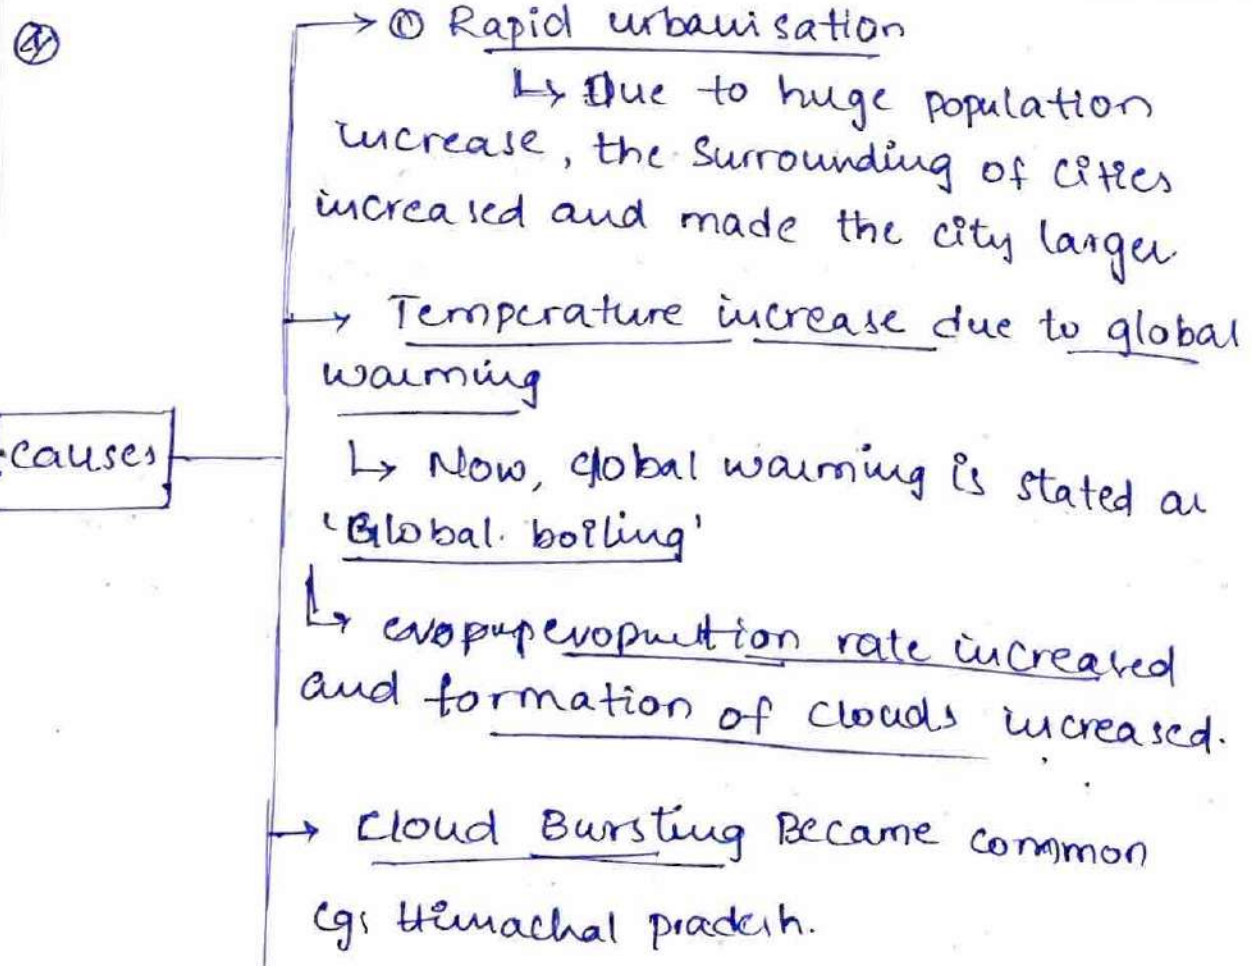 ① Rapid urbanisation
↳ Due to huge population
increase, the surrounding of cities
increased and made the city larger.
→ Temperature increase due to global
warming
causes
↳ Now, global warming is stated as
'Global boiling'
↳ evopuration rate increased
and formation of clouds increased.
→ Cloud Bursting Became common
eg: Himachal pradesh.